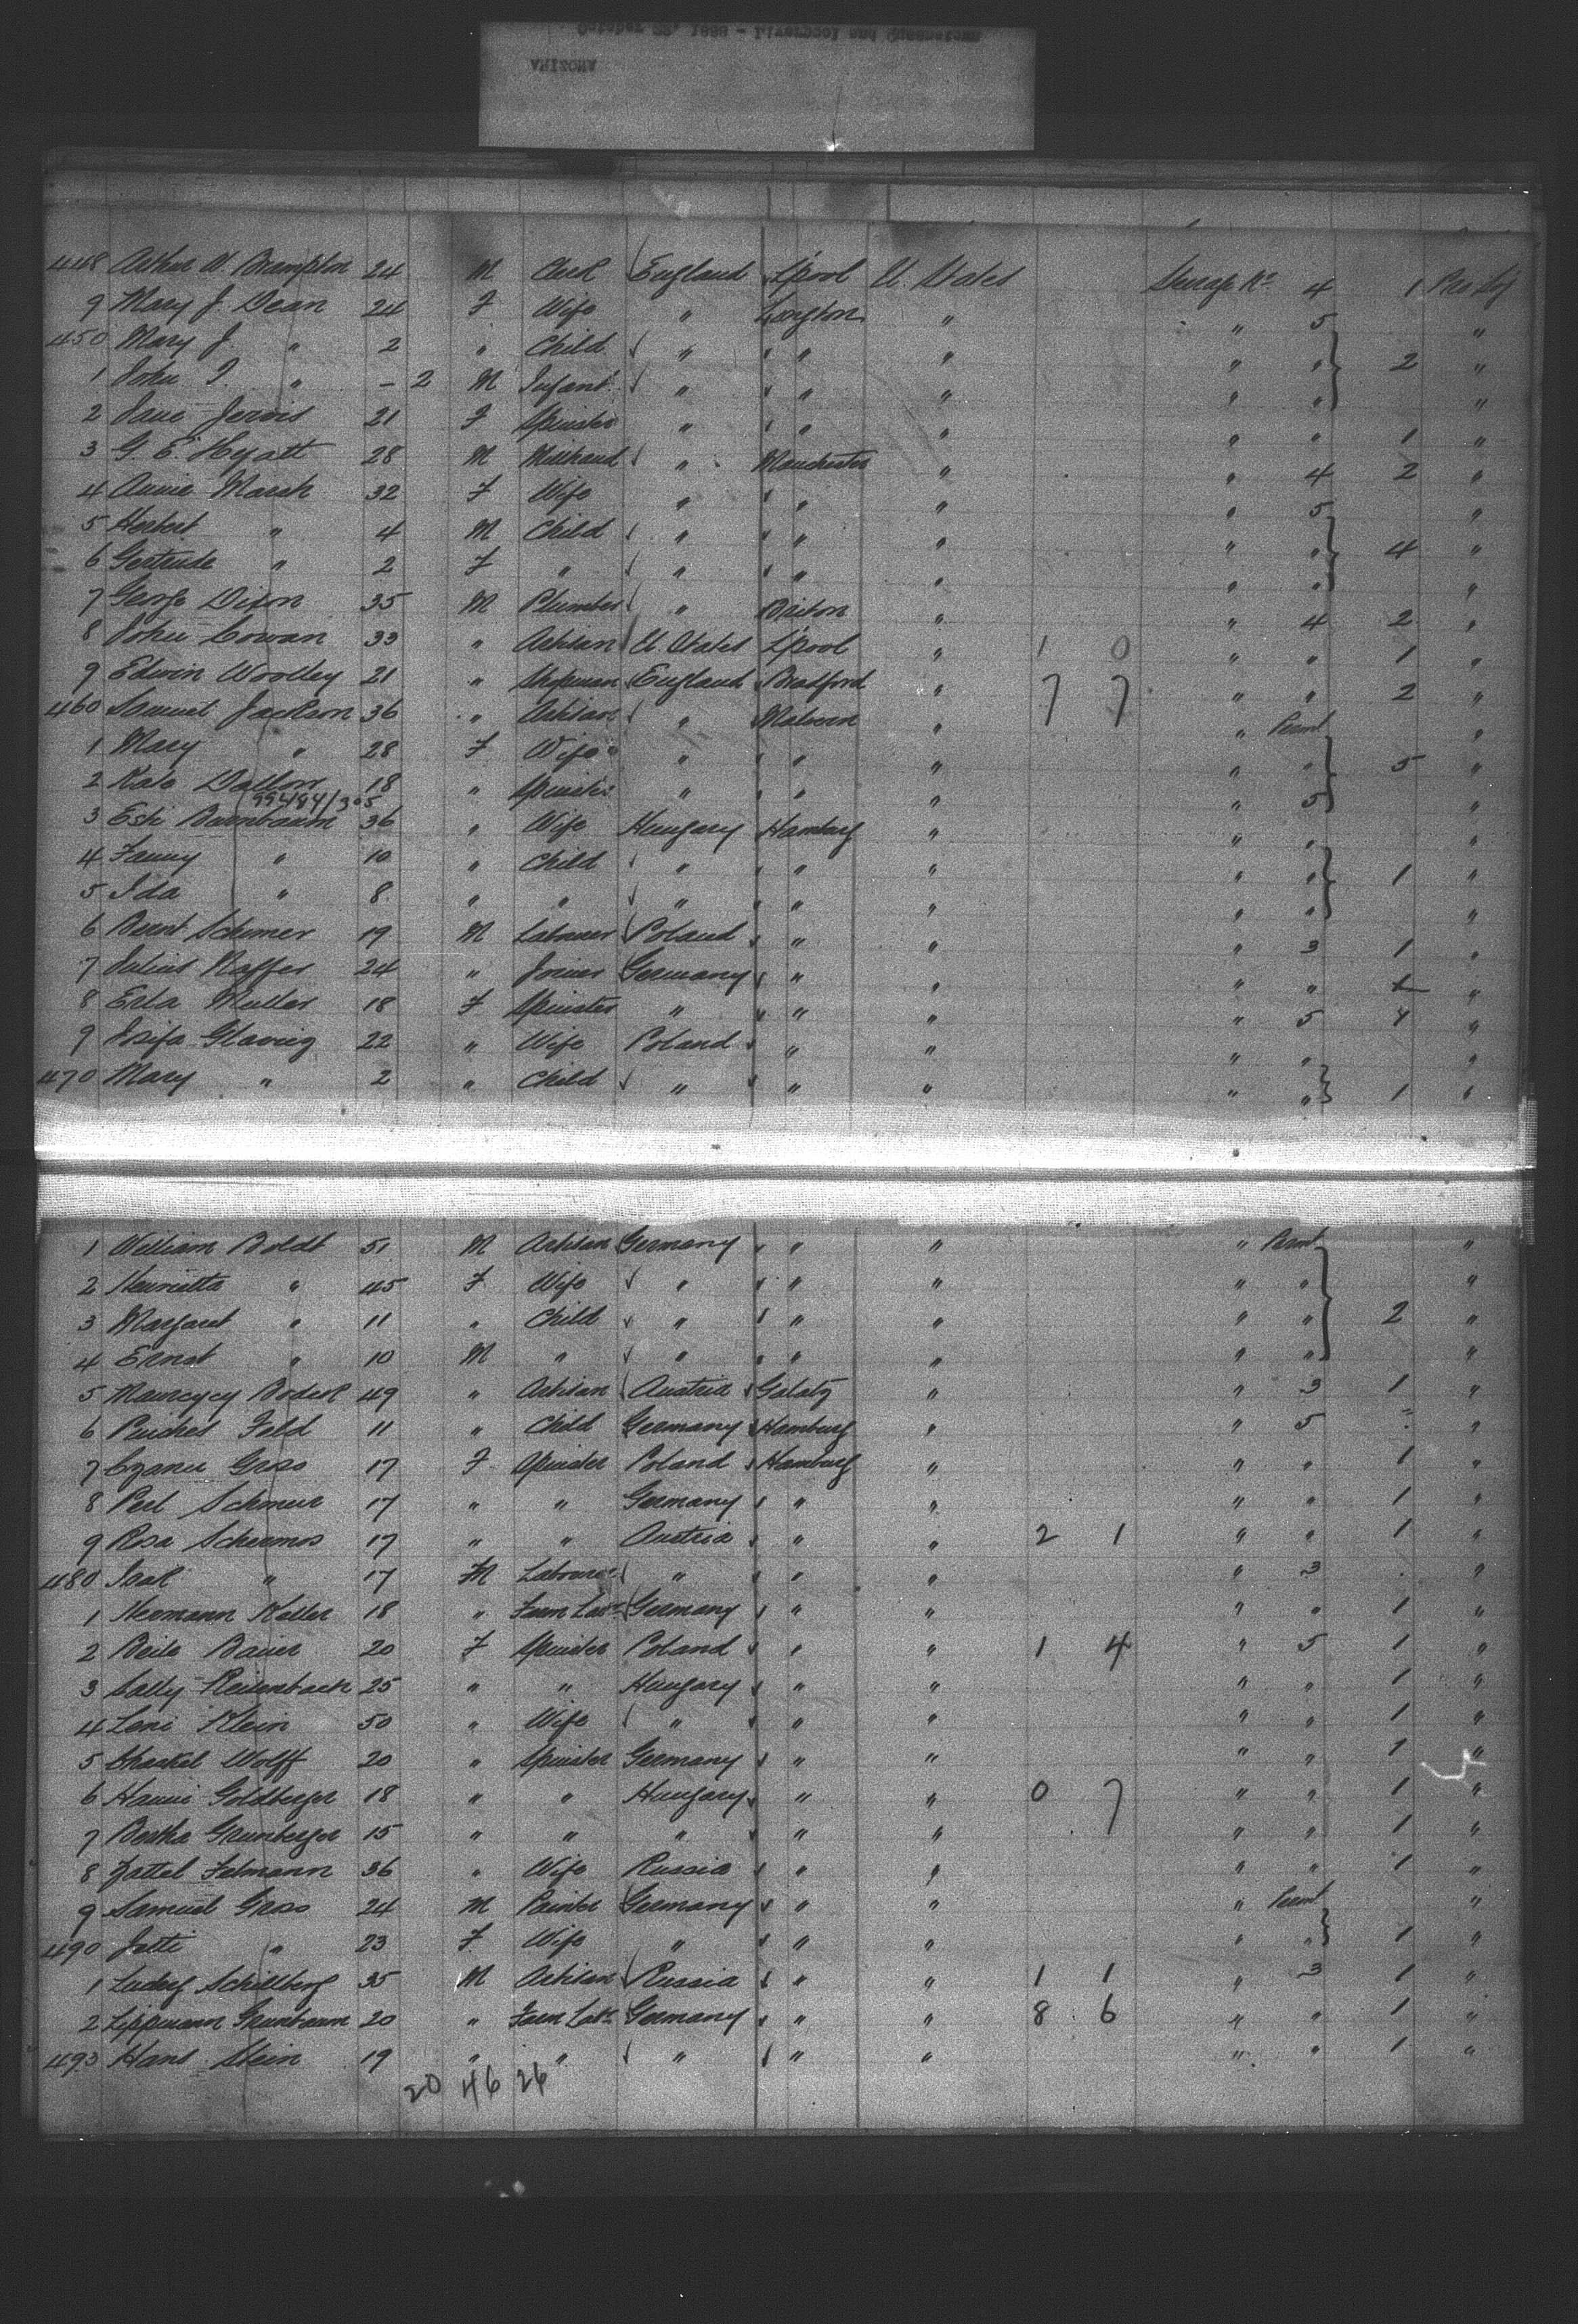 October 22, 1888 - Liverpool and Queenstown
ARIZONA
448 Arthur W. Brampton 24 M Clerk England L'pool U. States Steerage No 4 1
9 Mary J. Dean 24 F Wife " Longton " " 5 "
450 Mary J " 2 " Child " " " " " 2 "
1 John T. " - 2 M Infant " " " " " "
2 Jane Jervis 21 F Spinster " " " " " 1 "
3 G. E. Hyatt 28 M Millhand " Manchester " " 4 2 "
4 Annie Marsh 32 F Wife " " " " 5 "
5 Herbert " 4 M Child " " " " " 4 "
6 Gertrude " 2 F " " " " " " "
7 George Dixon 35 M Plumber " " " 4 2 "
8 John Cowan 33 " Artisan U. States L'pool " 1 0 " " 1 "
9 Edwin Woolley 21 " Shopman England Bradford " 7 7 " " 2 "
460 Samuel Jackson 36 " Artisan " Malvern " " "
1 Mary " 28 F Wife " " " " " 5 "
2 Kate 18 " Spinster " " " " 5 "
99484/305
3 Esti Barnbaum 36 " Wife Hungary Hamburg " " "
4 Fanny " 10 " Child " " " " " 1 "
5 Ida " 8 " " " " " " " "
6 Schimer 19 M Labourer Poland " " " 3 1 "
7 Julius Kaffer 24 " Joiner Germany " " " " 1 "
8 Erla Muller 18 F Spinster " " " " 5 4 "
9 Josifa 22 " Wife Poland " " " " "
470 Mary " 2 " Child " " " " " 1 "
1 William Boldt 51 M Artisan Germany " " " "
2 Henrietta " 45 F Wife " " " " " "
3 Margaret " 11 " Child " " " " " 2 "
4 Ernst " 10 M " " " " " " "
5 49 " Artisan Austria Galatz " " 3 1 "
6 Feld 11 " Child Germany Hamburg " " 5 "
7 Gross 17 F Spinster Poland Hamburg " " " 1 "
8 Perl Schmeir 17 " " Germany " " " " 1 "
9 Rosa Schermos 17 " " Austria " " 2 1 " " 1 "
480 Isak " 17 M Labourer " " " " 3 "
1 Hermann Keller 18 " Farm Labr Germany " " " " 1 "
2 Beile Bauer 20 F Spinster Poland " " 1 4 " 5 1 "
3 Sally Reisenbach 25 " " Hungary " " " " 1 "
4 Leni Klein 50 " Wife " " " " " 1 "
5 Chaskel Wolff 20 " Spinster Germany " " " " 1 "
6 Hanni Goldberger 18 " " Hungary " " 0 7 " " 1 "
7 Bertha Grunberger 15 " " " " " " " 1 "
8 Zattel Felmann 36 " Wife Russia " " " " 1 "
9 Samuel Gross 24 M Painter Germany " " " "
490 Jetti " 23 F Wife " " " " " 1 "
1 Ludwig Schillberg 35 M Artisan Russia " " 1 1 " 3 1 "
2 Lippmann Grunbaum 20 " Farm Labr Germany " " 8 6 " " 1 "
493 Hans Stein 19 " " " " " " " 1 "
20 46 26